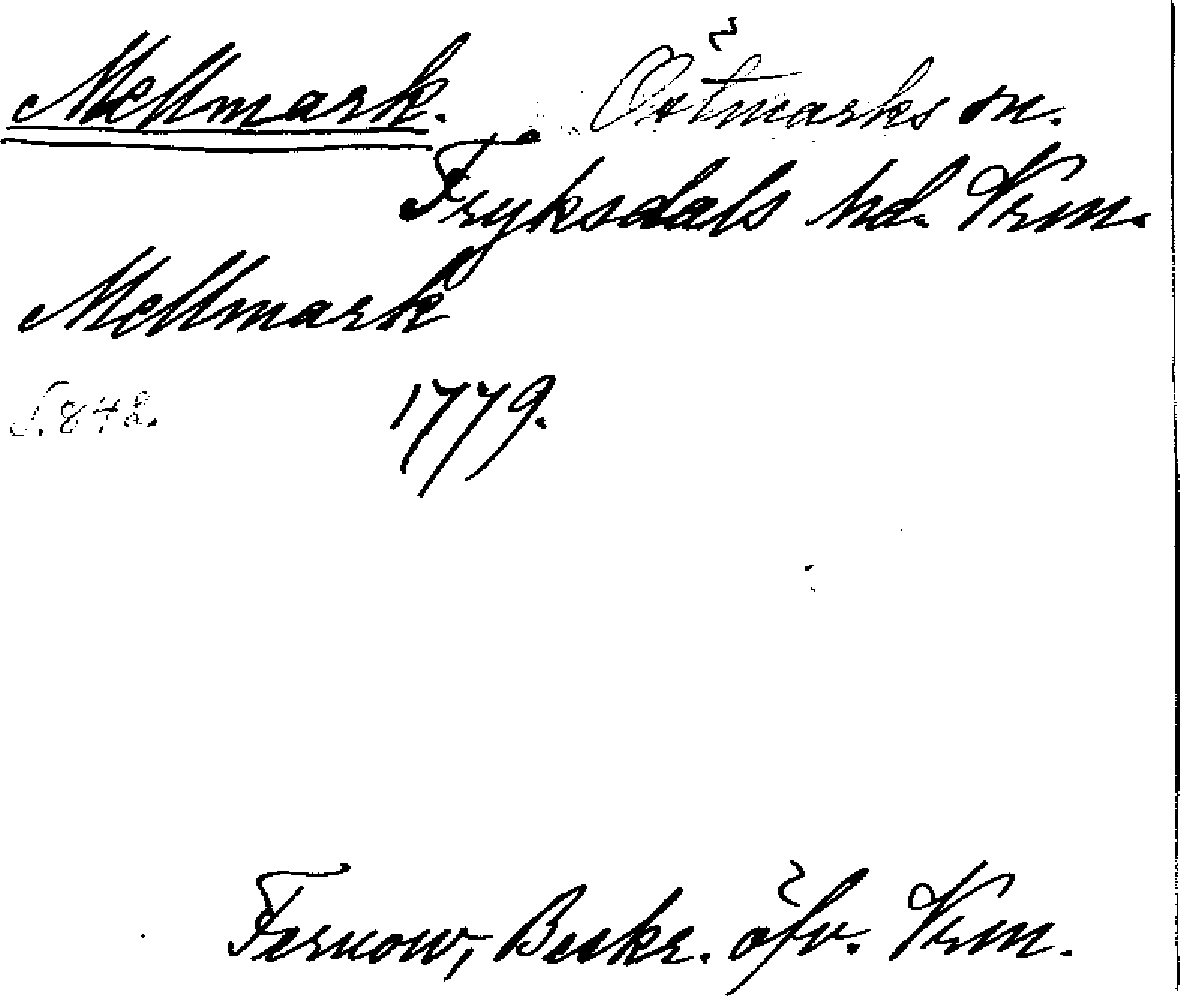 Mellmark. Östmarks sn.
Fryksdals hd. Vrm.
Mellmark
S. 842. 1779.
Fernow, Beskr. öfv. Vrm.